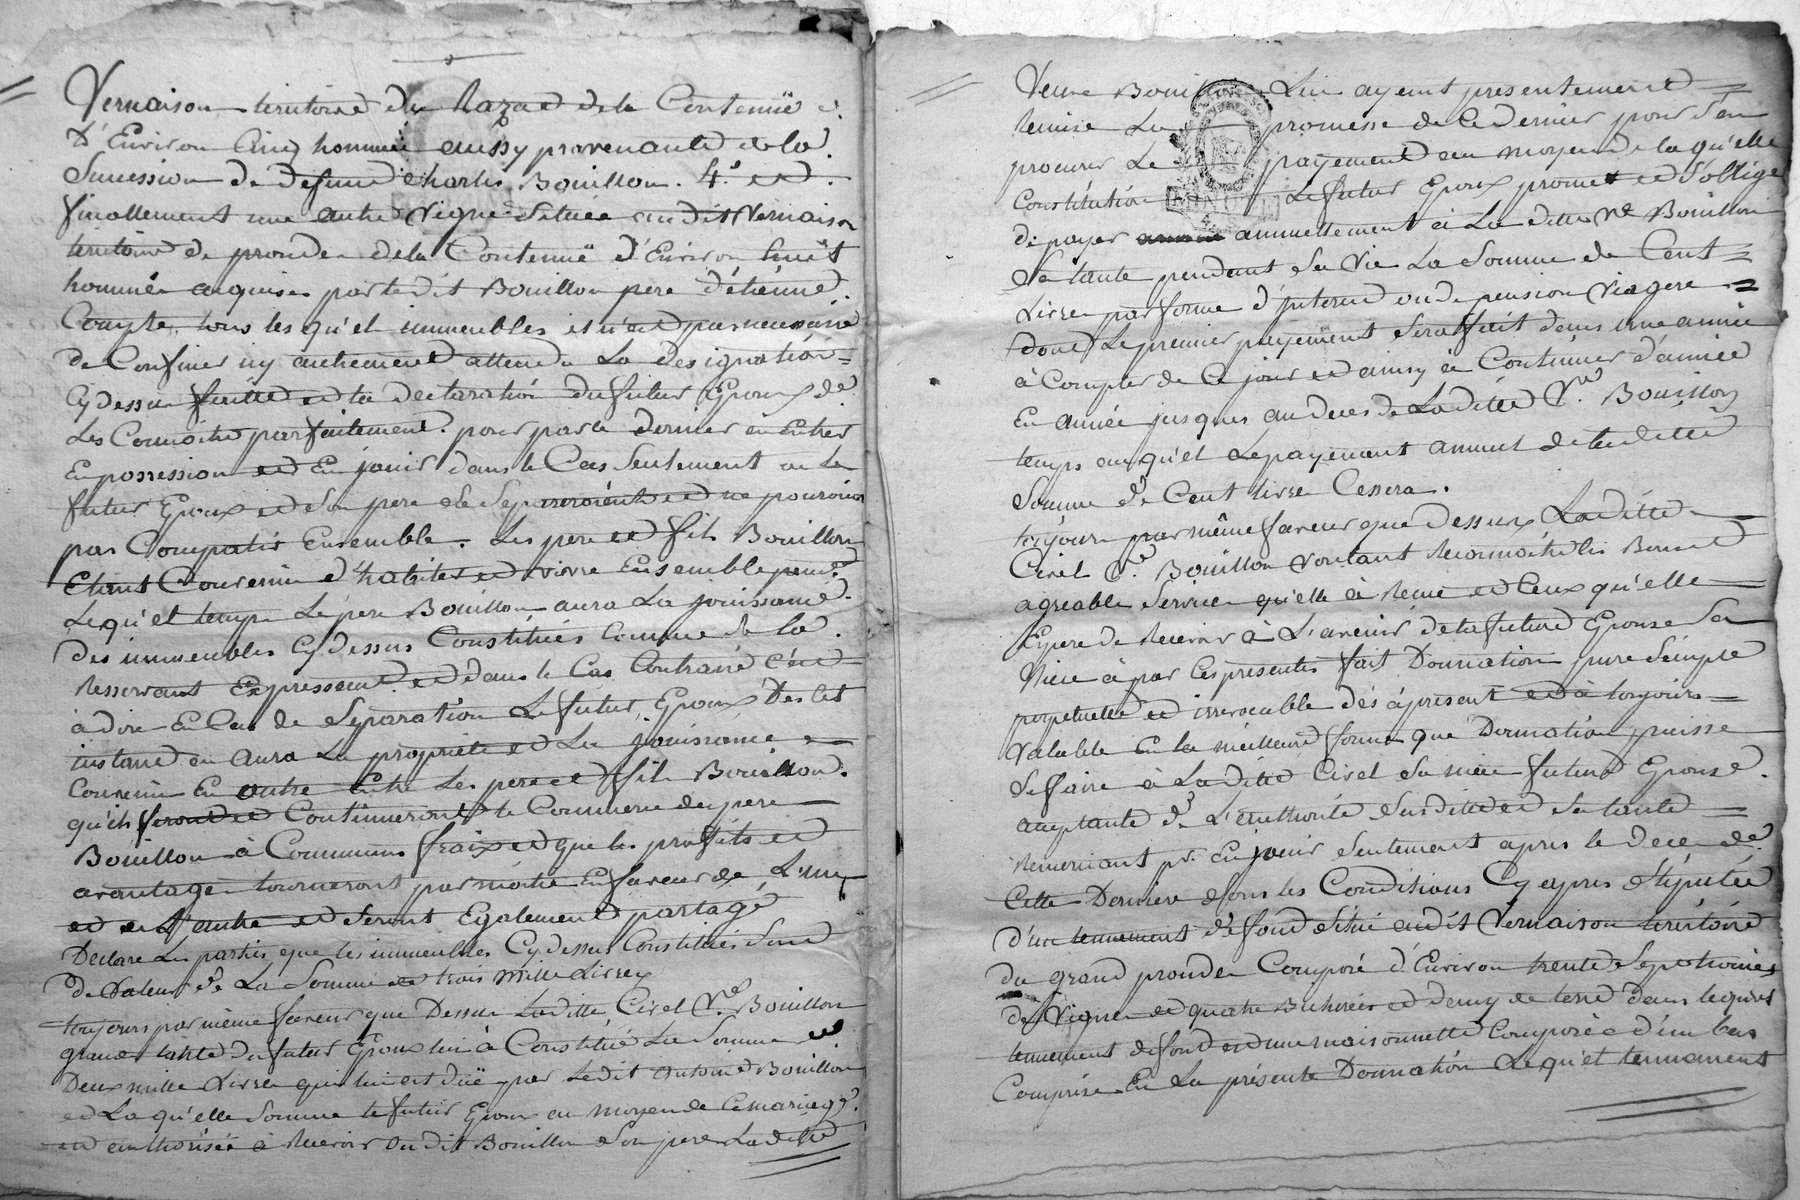 Vernaison territoire du Razat de la Contenüe
D'Environ Cinq hommée aussy provenante de la
Succession de defunt Charles Bouillon. 4.° et
finallement une autre vigne Située audit Vernaison
territoire de pronde dela Contenüe d'Environ huit
hommée acquises par ledit Bouillon pere d'étienne
Compte, tous lesqu'els immeubles il n'est pas necessaire
de Confiner ny autrement attendu La designation
Cy dessus faitte et la declaration du futur Epoux de
Les Connoitre parfaitement. pour par le dernier en Entrer
En possession et En jouir dans le Cas Seulement ou Le
futur Epoux et Son pere se Separeroient et ne pouroient
pas Compatir Ensemble. Les pere et fils Bouillon
Etant Convenu d'habiter et vivre Ensemble pend.t
Lequ'el temps Le pere Bouillon aura La jouissance
des immeubles Cy dessus Constitués Comme Se la
Reservant Expressemt. et dans le Cas Contraire C'est
à dire En Cas de Séparation Le futur Epoux Des Cet
instant en aura La propriété et La jouissance
Convenu En outre Entre Les pere et fils Bouillon
qu'ils feront et Continueront le Commerce du pere
Bouillon à Communs fraix et que les profits et
avantages tourneront par moitié En faveur de L'un
et de L'autre et Seront Egalement partagé
Declare Les parties que les immeubles Cy dessus Constitués Sont
de Valeur de La Somme de trois mille Livres
toujours par même faveur que Dessus Laditte Civet Ve. Bouillon
grande tante du futur Epoux lui à Constitué La Somme de
Deux mille Livres qui lui est düe par Ledit Antoine Bouillon
et Laqu'elle Somme le futur Epoux au moyen de Ce mariage
est authorisée à Recevoir dudit Bouillon Son pere Laditte
Veuve Bouillon Lui ayant presentement
Remise La promesse de Ce dernier pour S'en
procurer Le payement au moyen de laqu'elle
Constitution Le futur Epoux promet et S'oblige
de payer annuellement à La ditte Ve Bouillon
Sa tante pendant Sa Vie La Somme de Cent
Livres par forme d'jnteret ou de pension Viagere
dont Le premier payement Sera fait dans une année
à Compter de Ce jour et ainsy à Continuer d'année
En année jusques au deces de Laditte Ve. Bouillon
temps auqu'el Le payement annuel de laditte
Somme de Cent livres Cessera.
toujours par même faveur que dessus Laditte
Civet Ve. Bouillon voulant Reconnoitre les Bons et
agreables Services qu'elle à Reçue et Ceux qu'elle
Espere de Recevoir à L'avenir de la future Epouse Sa
Niece à par Ces presentes fait Donnation pure Simple
perpetuelle et irrevocable des à present et à toujours
Valable En la meilleure forme que Donnation puisse
Se faire à Laditte Civet Sa niece future Epouse
acceptante de L'authorité Susditte et Sa tante
Remerciant pr. En jouir Seulement apres le Deces de
Cette Derniere Sous les Conditions Cy apres Stipulée
d'un tennement de fond Situé audit Vernaison territoire
du grand pronde Composé d'Environ trente Sept homées
de Vigne et quatre Bicherées et demy de terre dans lequ'el
tennement de fond est une maisonnette Composée d'un bas
Comprise En La présente Donnation Lequ'el tennement